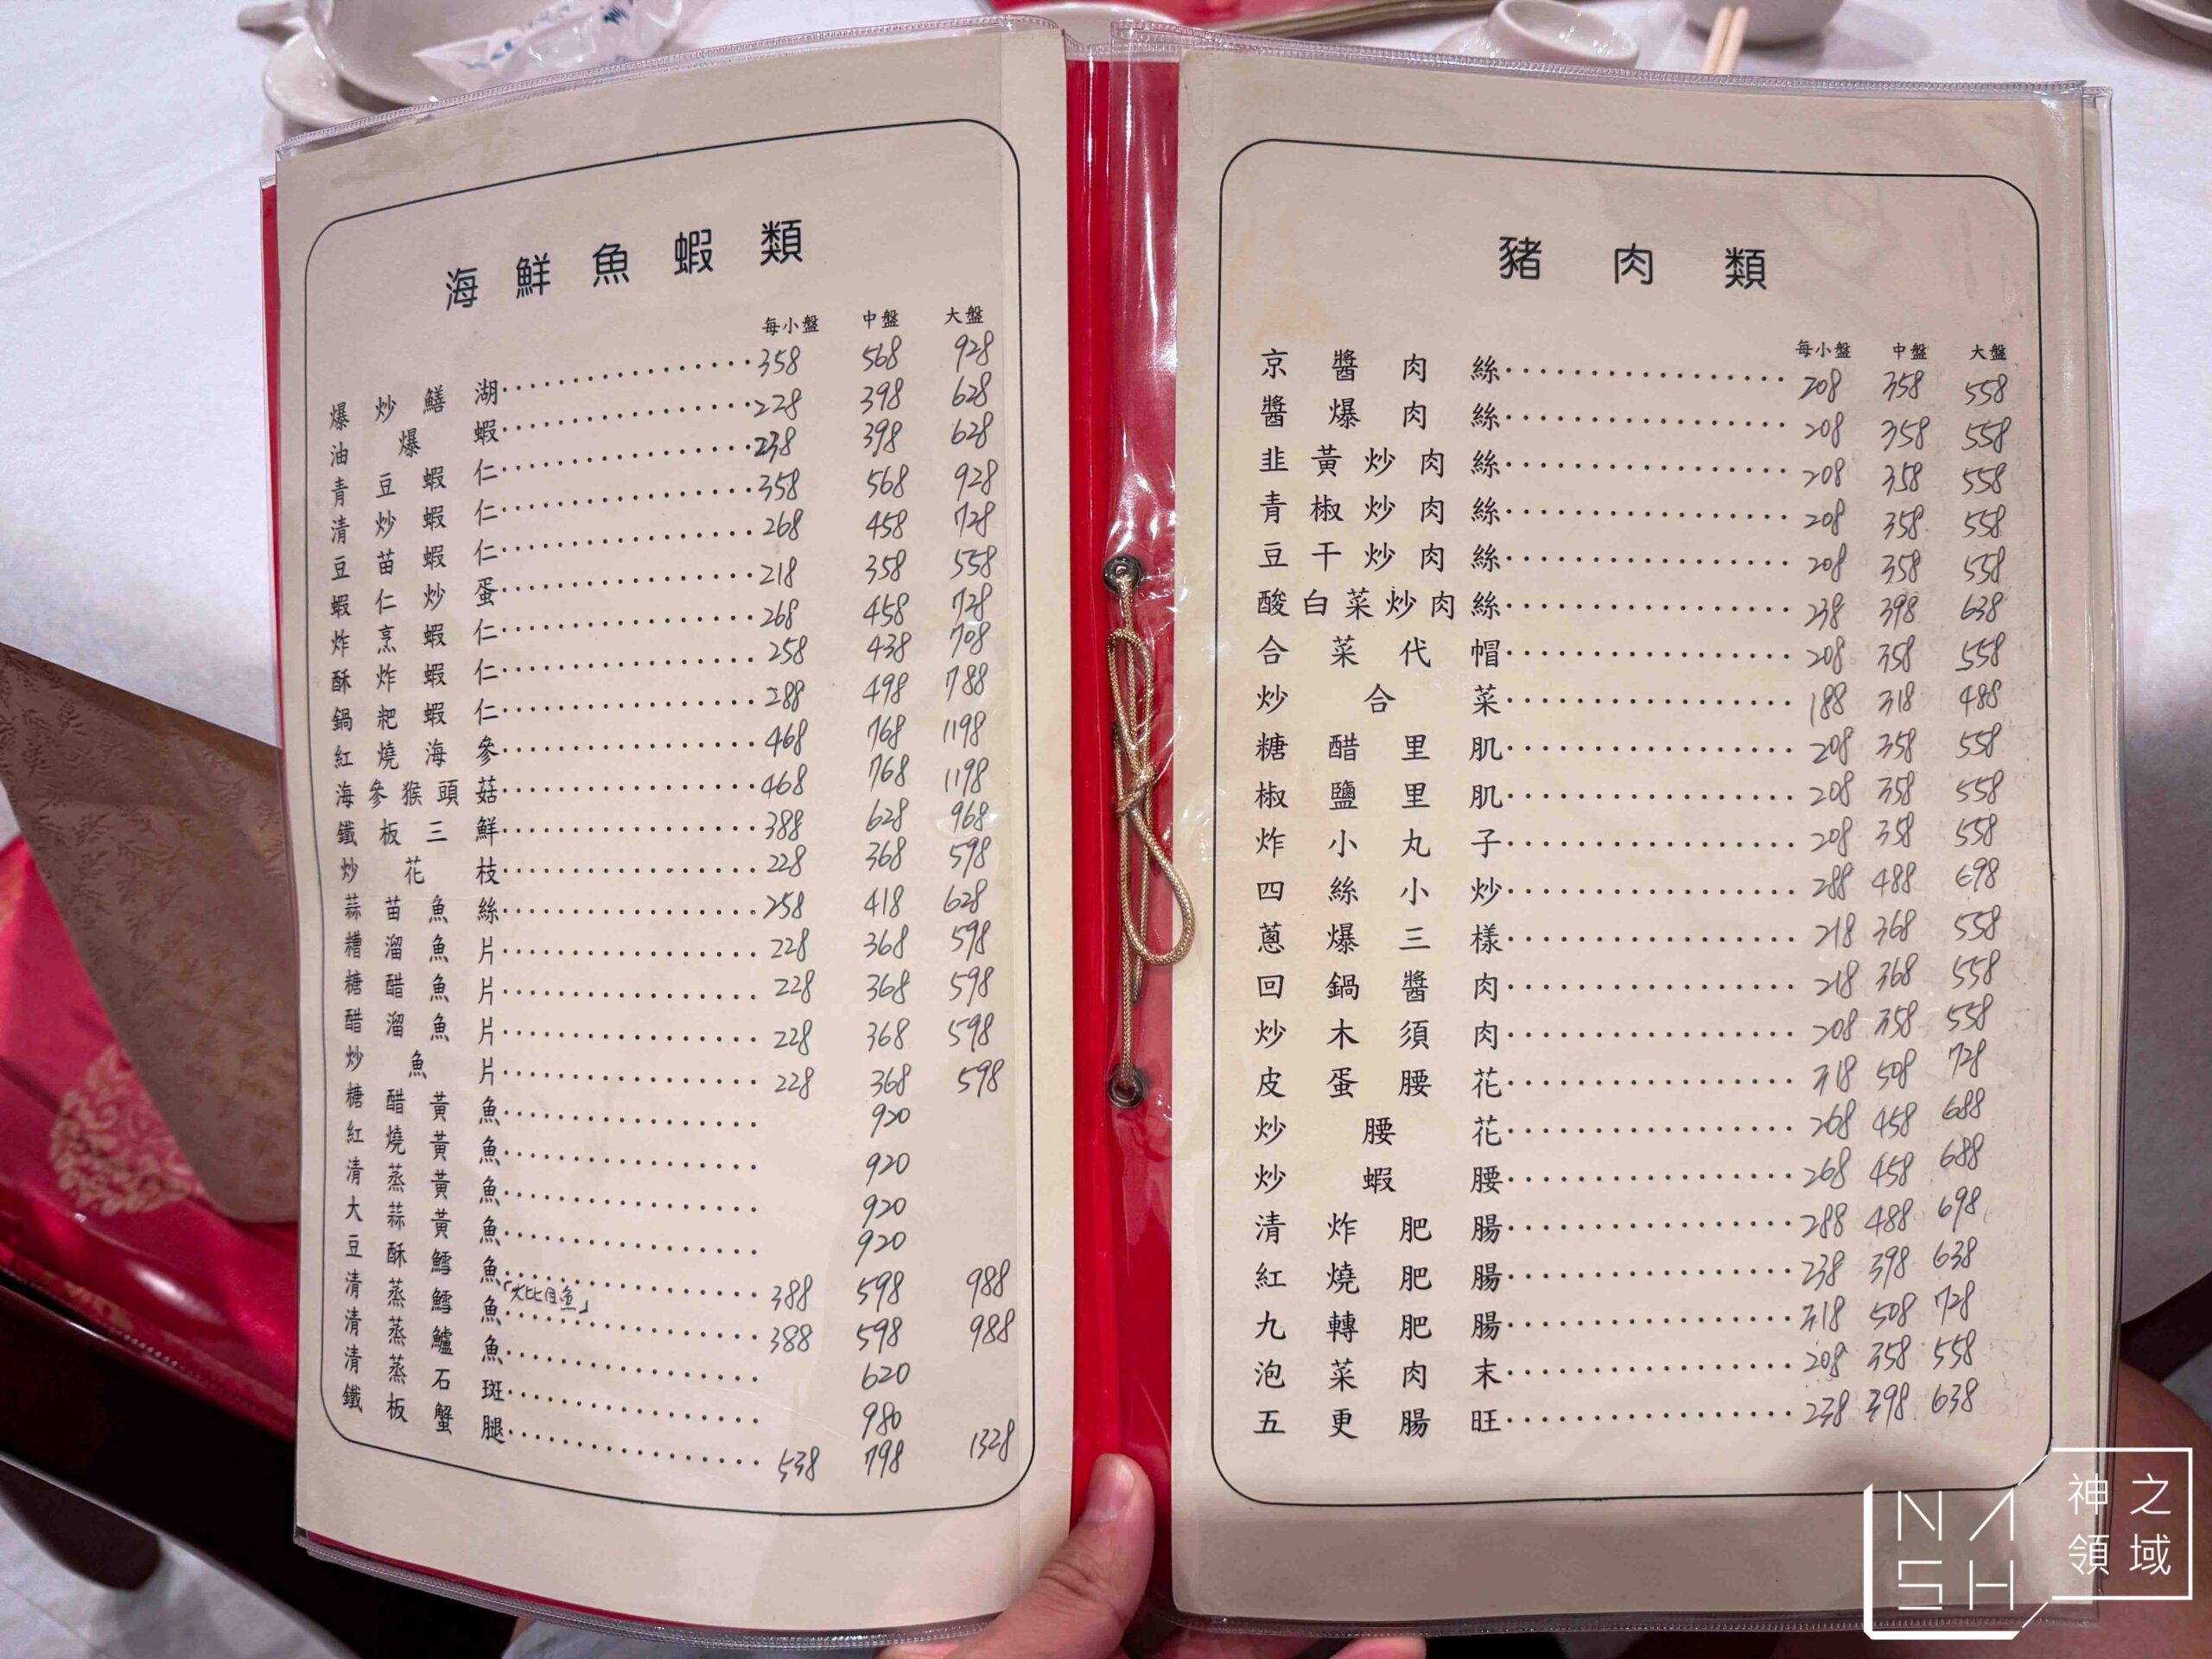 海鮮魚蝦類
每小盤 中盤 大盤
爆炒鱔湖 358 568 928
油爆蝦 228 398 628
青豆蝦仁 238 398 628
清炒蝦仁 358 568 928
豆苗蝦仁 268 458 728
蝦仁炒蛋 218 358 558
炸烹蝦仁 268 458 728
酥炸蝦仁 258 438 708
鍋粑蝦仁 288 498 788
紅燒海參 468 768 1198
海參猴頭菇 468 768 1198
鐵板三鮮 388 628 968
炒花枝 228 368 598
蒜苗魚絲 258 418 628
糟溜魚片 228 368 598
糖醋魚片 228 368 598
醋溜魚片 228 368 598
炒魚片 228 368 598
糖醋黃魚 920
紅燒黃魚 920
清蒸黃魚 920
大蒜黃魚 920
豆酥鱈魚 388 598 988
「大比目魚」
清蒸鱈魚 388 598 988
清蒸鱸魚 620
清蒸石斑 980
鐵板蟹腿 538 798 1328
豬肉類
每小盤 中盤 大盤
京醬肉絲 208 358 558
醬爆肉絲 208 358 558
韭黃炒肉絲 208 358 558
青椒炒肉絲 208 358 558
豆干炒肉絲 208 358 558
酸白菜炒肉絲 238 398 638
合菜代帽 208 358 558
炒合菜 188 318 488
糖醋里肌 208 358 558
椒鹽里肌 208 358 558
炸小丸子 208 358 558
四絲小炒 288 488 698
蔥爆三樣 218 368 558
回鍋醬肉 218 368 558
炒木須肉 208 358 558
皮蛋腰花 318 508 728
炒腰花 268 458 688
炒蝦腰 268 458 688
清炸肥腸 288 488 698
紅燒肥腸 238 398 638
九轉肥腸 318 508 728
泡菜肉末 208 358 558
五更腸旺 238 398 638
NASH
神之領域